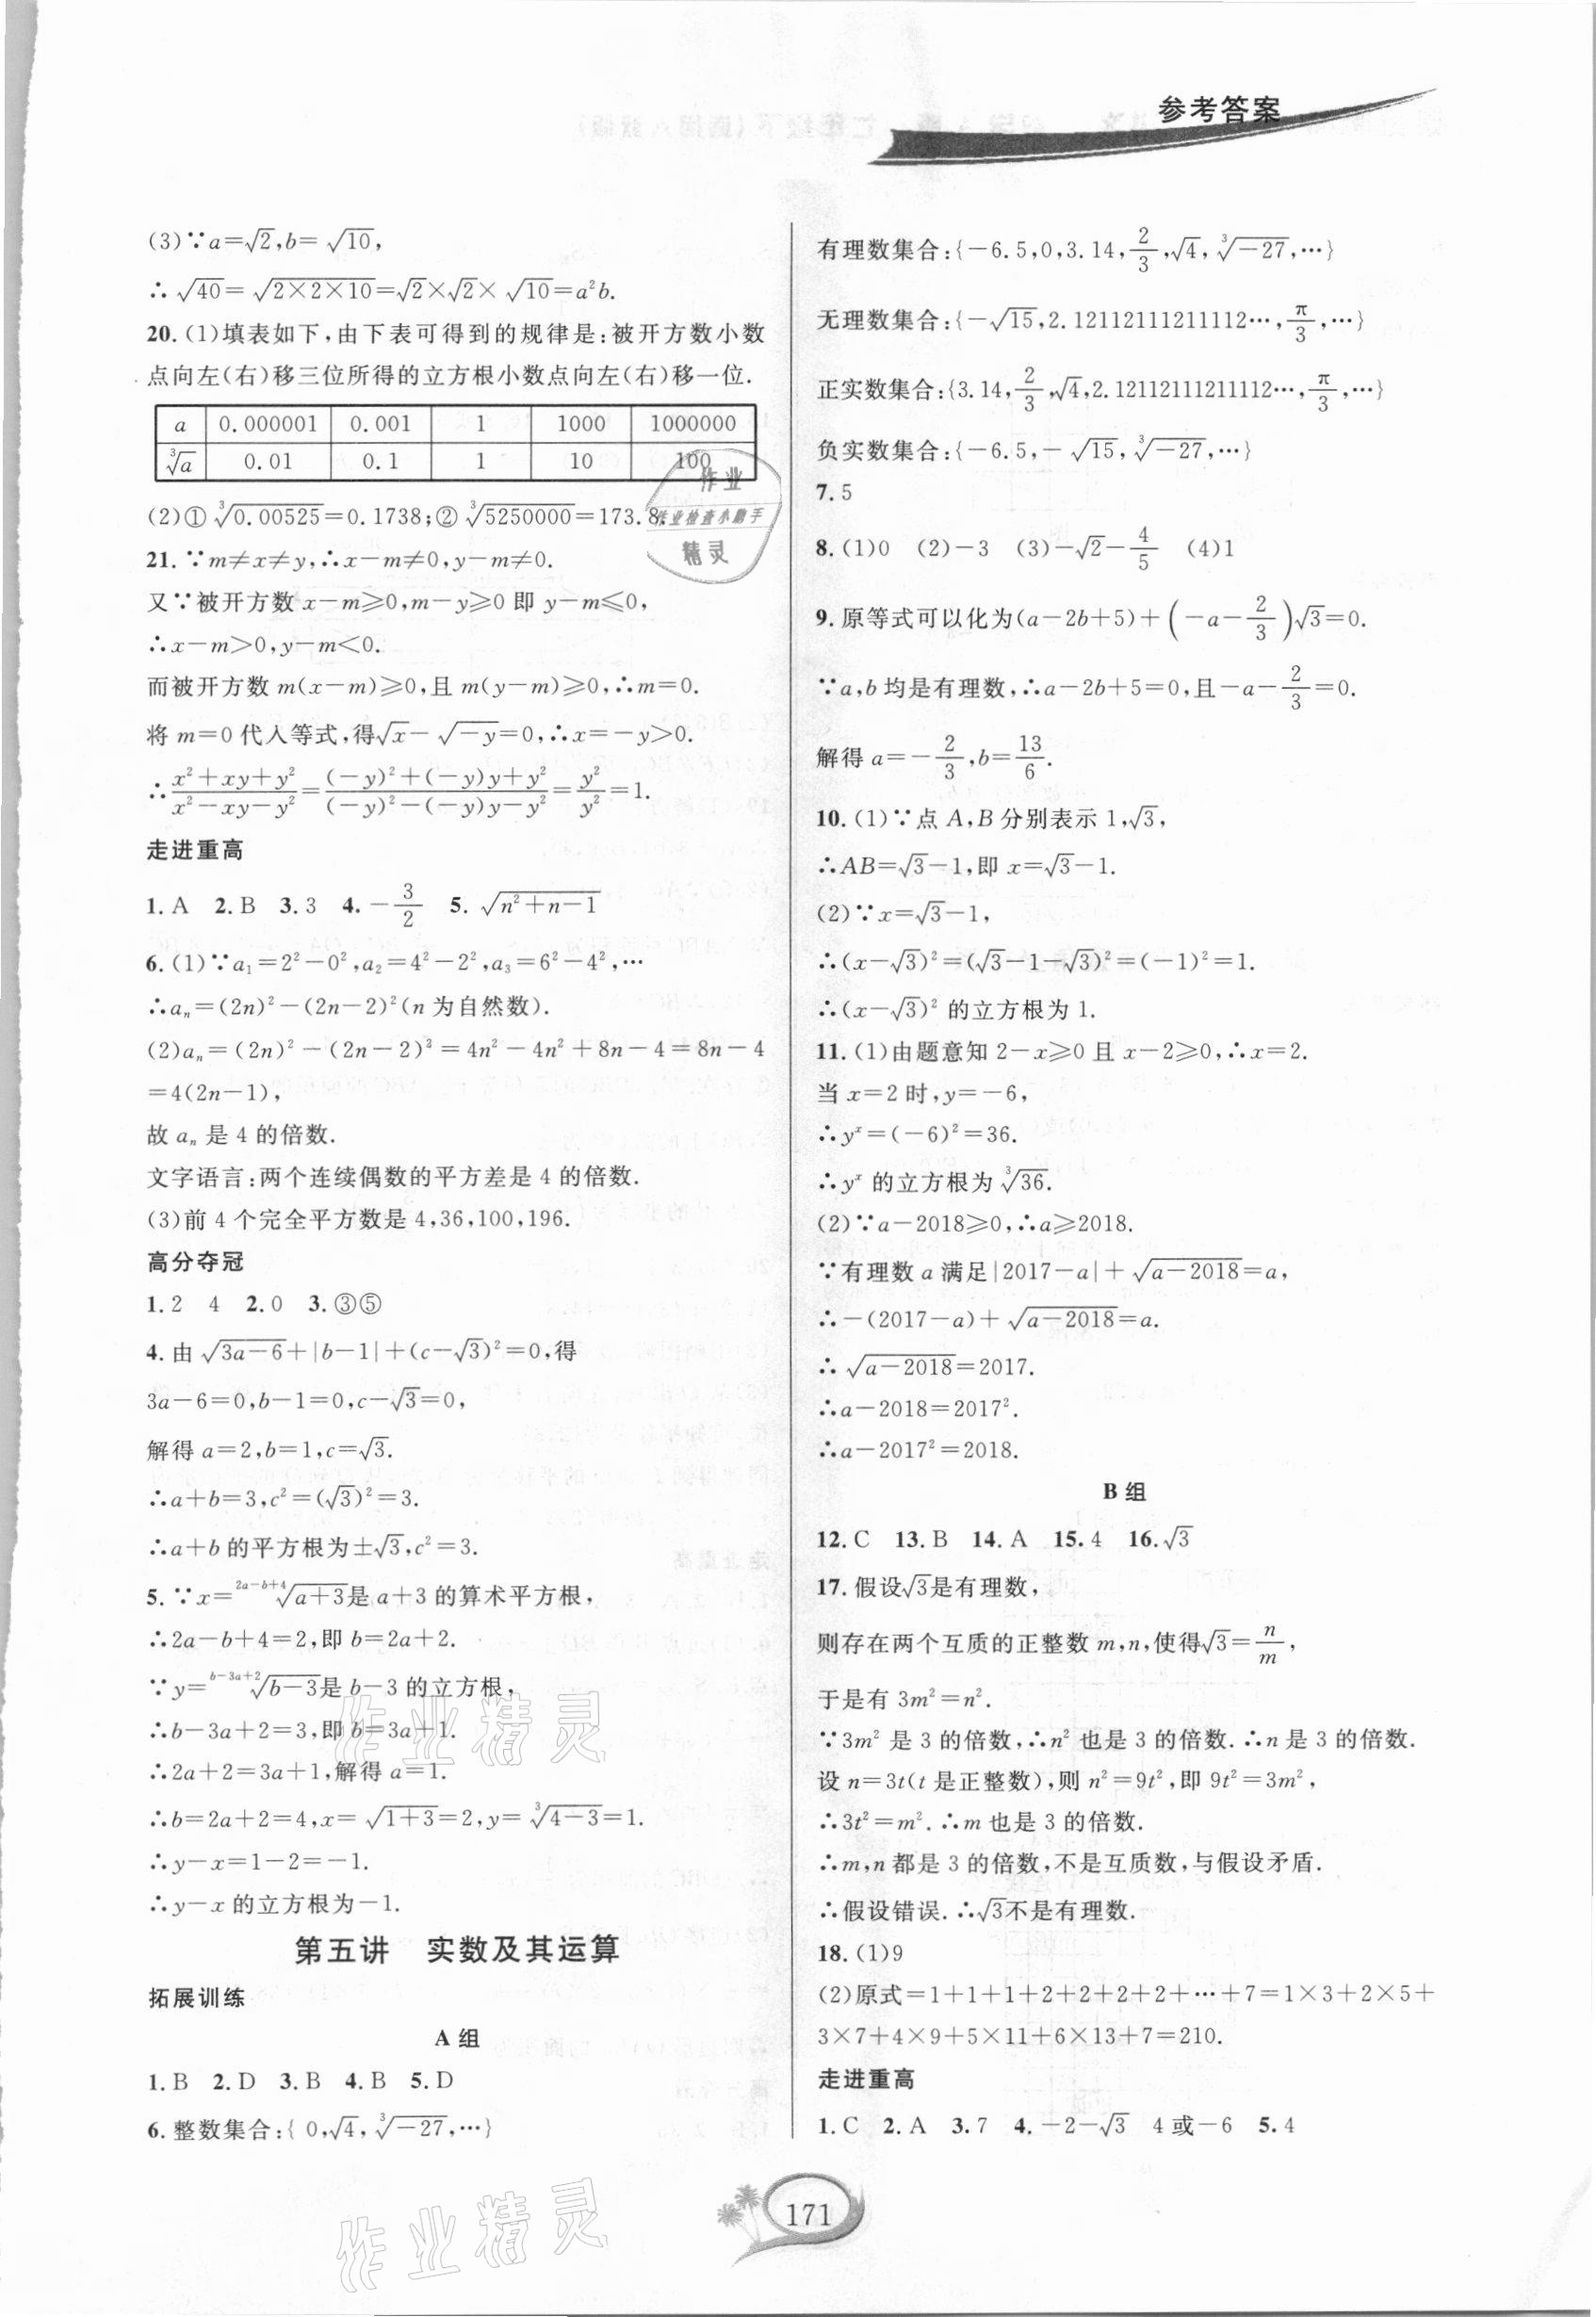 参考答案
(3)∵a=√2,b=√10,
∴√40=√(2×2×10)=√2×√2×√10=a²b.
20.(1)填表如下,由下表可得到的规律是:被开方数小数
点向左(右)移三位所得的立方根小数点向左(右)移一位.
a 0.000001 0.001 1 1000 1000000
∛a 0.01 0.1 1 10 100
(2)①∛0.00525=0.1738;②∛5250000=173.8.
21.∵m≠x≠y,∴x-m≠0,y-m≠0.
又∵被开方数 x-m≥0,m-y≥0 即 y-m≤0,
∴x-m>0,y-m<0.
而被开方数 m(x-m)≥0,且 m(y-m)≥0,∴m=0.
将 m=0 代入等式,得√x-√(-y)=0,∴x=-y>0.
∴(x²+xy+y²)/(x²-xy-y²)=((-y)²+(-y)y+y²)/((-y)²-(-y)y-y²)=y²/y²=1.
走进重高
1.A 2.B 3.3 4.-3/2 5.√(n²+n-1)
6.(1)∵a₁=2²-0²,a₂=4²-2²,a₃=6²-4²,…
∴aₙ=(2n)²-(2n-2)²(n 为自然数).
(2)aₙ=(2n)²-(2n-2)²=4n²-4n²+8n-4=8n-4
=4(2n-1),
故 aₙ 是 4 的倍数.
文字语言:两个连续偶数的平方差是 4 的倍数.
(3)前 4 个完全平方数是 4,36,100,196.
高分夺冠
1.2 4 2.0 3.③⑤
4.由√(3a-6)+|b-1|+(c-√3)²=0,得
3a-6=0,b-1=0,c-√3=0,
解得 a=2,b=1,c=√3.
∴a+b=3,c²=(√3)²=3.
∴a+b 的平方根为±√3,c²=3.
5.∵x=²ᵃ⁻ᵇ⁺⁴√(a+3)是 a+3 的算术平方根,
∴2a-b+4=2,即 b=2a+2.
∵y=ᵇ⁻³ᵃ⁺²√(b-3)是 b-3 的立方根,
∴b-3a+2=3,即 b=3a+1.
∴2a+2=3a+1,解得 a=1.
∴b=2a+2=4,x=√(1+3)=2,y=∛(4-3)=1.
∴y-x=1-2=-1.
∴y-x 的立方根为-1.
第五讲 实数及其运算
拓展训练
A 组
1.B 2.D 3.B 4.B 5.D
6.整数集合:{ 0,√4,∛-27,…}
有理数集合:{-6.5,0,3.14,2/3,√4,∛-27,…}
无理数集合:{-√15,2.12112111211112…,π/3,…}
正实数集合:{3.14,2/3,√4,2.12112111211112…,π/3,…}
负实数集合:{-6.5,-√15,∛-27,…}
7.5
8.(1)0 (2)-3 (3)-√2-4/5 (4)1
9.原等式可以化为(a-2b+5)+(-a-2/3)√3=0.
∵a,b 均是有理数,∴a-2b+5=0,且-a-2/3=0.
解得 a=-2/3,b=13/6.
10.(1)∵点 A,B 分别表示 1,√3,
∴AB=√3-1,即 x=√3-1.
(2)∵x=√3-1,
∴(x-√3)²=(√3-1-√3)²=(-1)²=1.
∴(x-√3)² 的立方根为 1.
11.(1)由题意知 2-x≥0 且 x-2≥0,∴x=2.
当 x=2 时,y=-6,
∴yˣ=(-6)²=36.
∴yˣ 的立方根为∛36.
(2)∵a-2018≥0,∴a≥2018.
∵有理数 a 满足|2017-a|+√(a-2018)=a,
∴-(2017-a)+√(a-2018)=a.
∴√(a-2018)=2017.
∴a-2018=2017².
∴a-2017²=2018.
B 组
12.C 13.B 14.A 15.4 16.√3
17.假设√3是有理数,
则存在两个互质的正整数 m,n,使得√3=n/m,
于是有 3m²=n².
∵3m² 是 3 的倍数,∴n² 也是 3 的倍数.∴n 是 3 的倍数.
设 n=3t(t 是正整数),则 n²=9t²,即 9t²=3m²,
∴3t²=m².∴m 也是 3 的倍数.
∴m,n 都是 3 的倍数,不是互质数,与假设矛盾.
∴假设错误.∴√3不是有理数.
18.(1)9
(2)原式=1+1+1+2+2+2+2+…+7=1×3+2×5+
3×7+4×9+5×11+6×13+7=210.
走进重高
1.C 2.A 3.7 4.-2-√3 4 或-6 5.4
171
作业
作业检查小助手
精灵
作业精灵
作业精灵